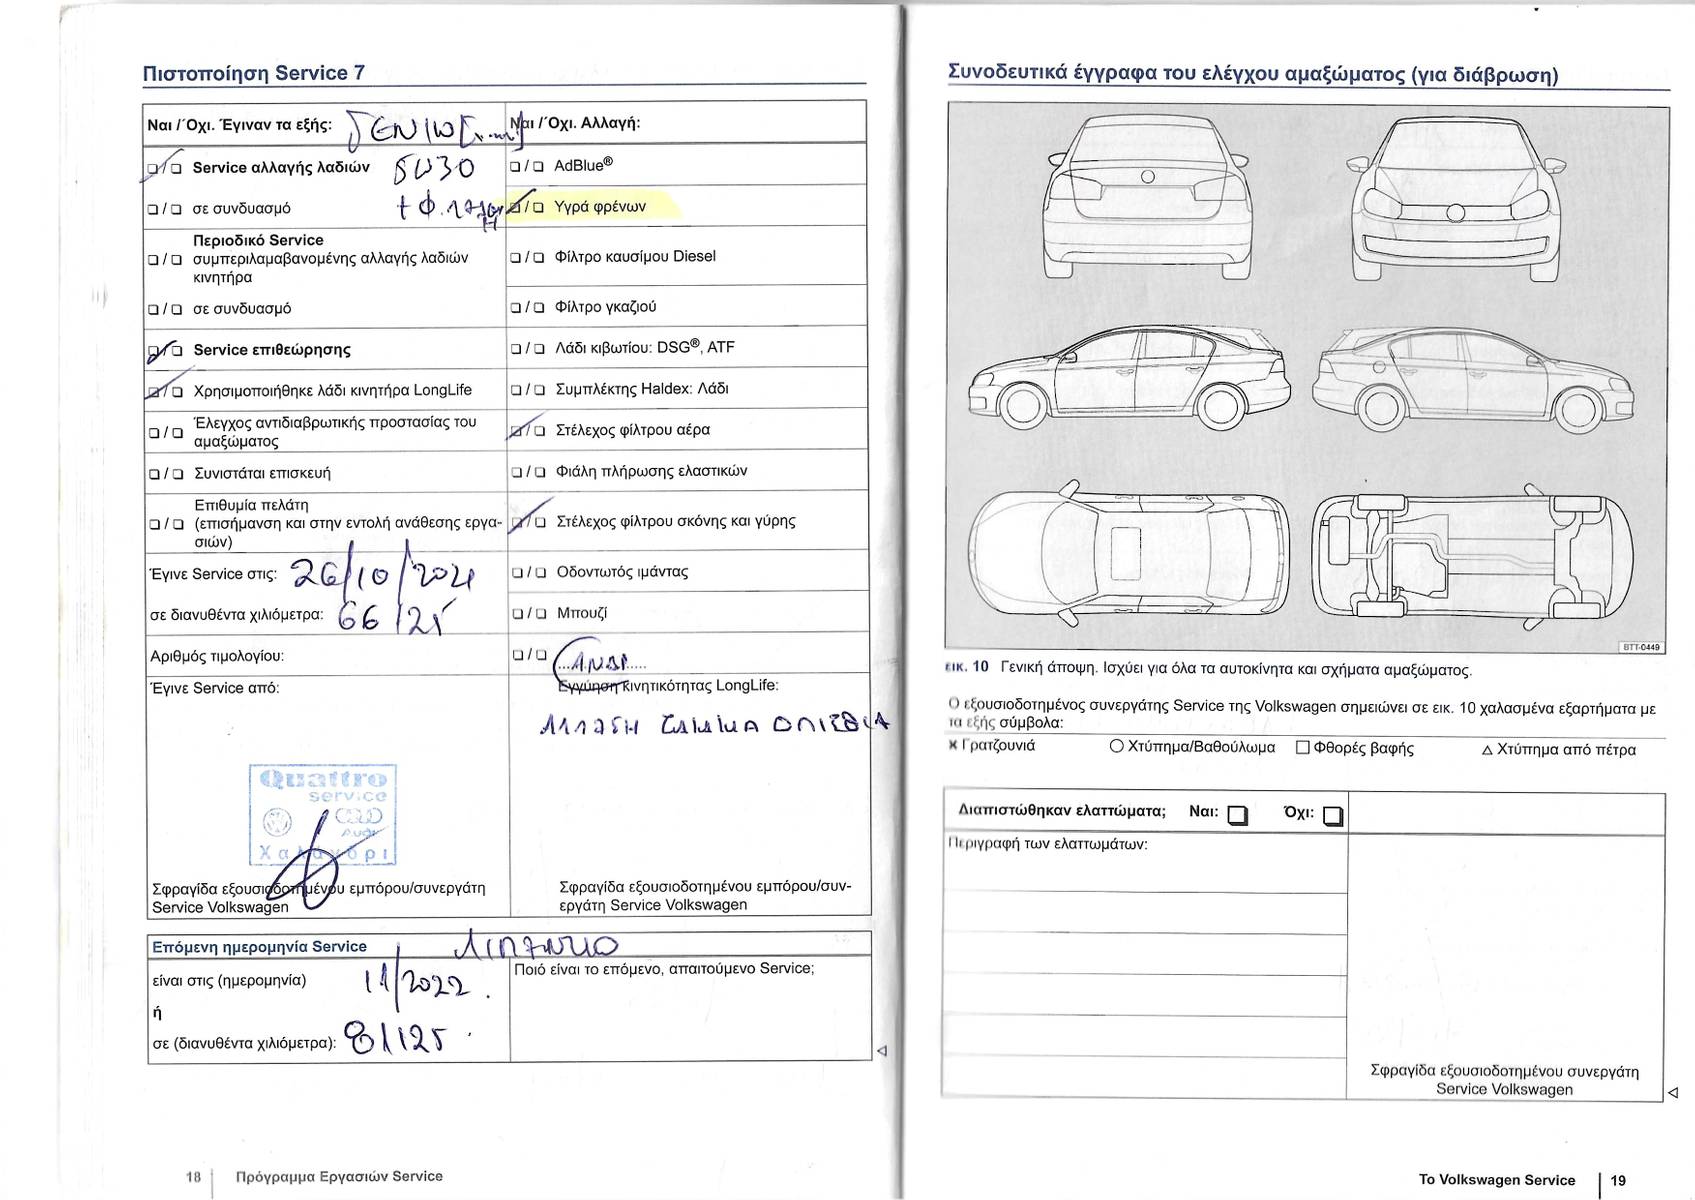 Πιστοποίηση Service 7
Ναι / Όχι. Έγιναν τα εξής:
☐ / ☐ Service αλλαγής λαδιών 5W30
☐ / ☐ σε συνδυασμό + Φ.
☐ / ☐ Περιοδικό Service
συμπεριλαμαβανομένης αλλαγής λαδιών
κινητήρα
☐ / ☐ σε συνδυασμό
☐ / ☐ Service επιθεώρησης
☐ / ☐ Χρησιμοποιήθηκε λάδι κινητήρα LongLife
☐ / ☐ Έλεγχος αντιδιαβρωτικής προστασίας του
αμαξώματος
☐ / ☐ Συνιστάται επισκευή
☐ / ☐ Επιθυμία πελάτη
(επισήμανση και στην εντολή ανάθεσης εργα-
σιών)
Έγινε Service στις: 26/10/2021
σε διανυθέντα χιλιόμετρα: 66125
Αριθμός τιμολογίου:
Έγινε Service από:
Quattro
service
Audi
Χαλάνδρι
Σφραγίδα εξουσιοδοτημένου εμπόρου/συνεργάτη
Service Volkswagen
Ναι / Όχι. Αλλαγή:
☐ / ☐ AdBlue®
☐ / ☐ Υγρά φρένων
☐ / ☐ Φίλτρο καυσίμου Diesel
☐ / ☐ Φίλτρο γκαζιού
☐ / ☐ Λάδι κιβωτίου: DSG®, ATF
☐ / ☐ Συμπλέκτης Haldex: Λάδι
☐ / ☐ Στέλεχος φίλτρου αέρα
☐ / ☐ Φιάλη πλήρωσης ελαστικών
☐ / ☐ Στέλεχος φίλτρου σκόνης και γύρης
☐ / ☐ Οδοντωτός ιμάντας
☐ / ☐ Μπουζί
☐ / ☐
Εγγύηση κινητικότητας LongLife:
ΑΛΛΑΓΗ ΤΑΚΑΚΙΑ ΟΠΙΣΘΙΑ
Σφραγίδα εξουσιοδοτημένου εμπόρου/συν-
εργάτη Service Volkswagen
Επόμενη ημερομηνία Service
είναι στις (ημερομηνία) 11/2022
ή
σε (διανυθέντα χιλιόμετρα): 81125
Ποιό είναι το επόμενο, απαιτούμενο Service;
18 Πρόγραμμα Εργασιών Service
Συνοδευτικά έγγραφα του ελέγχου αμαξώματος (για διάβρωση)
BTT-0449
εικ. 10 Γενική άποψη. Ισχύει για όλα τα αυτοκίνητα και σχήματα αμαξώματος.
Ο εξουσιοδοτημένος συνεργάτης Service της Volkswagen σημειώνει σε εικ. 10 χαλασμένα εξαρτήματα με
τα εξής σύμβολα:
× Γρατζουνιά ○ Χτύπημα/Βαθούλωμα □ Φθορές βαφής △ Χτύπημα από πέτρα
Διαπιστώθηκαν ελαττώματα; Ναι: ☐ Όχι: ☐
Περιγραφή των ελαττωμάτων:
Σφραγίδα εξουσιοδοτημένου συνεργάτη
Service Volkswagen
Το Volkswagen Service 19